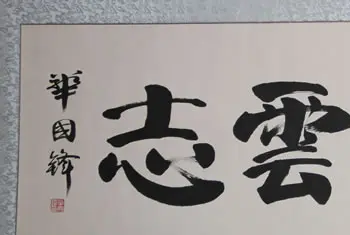 雲志
華國鋒